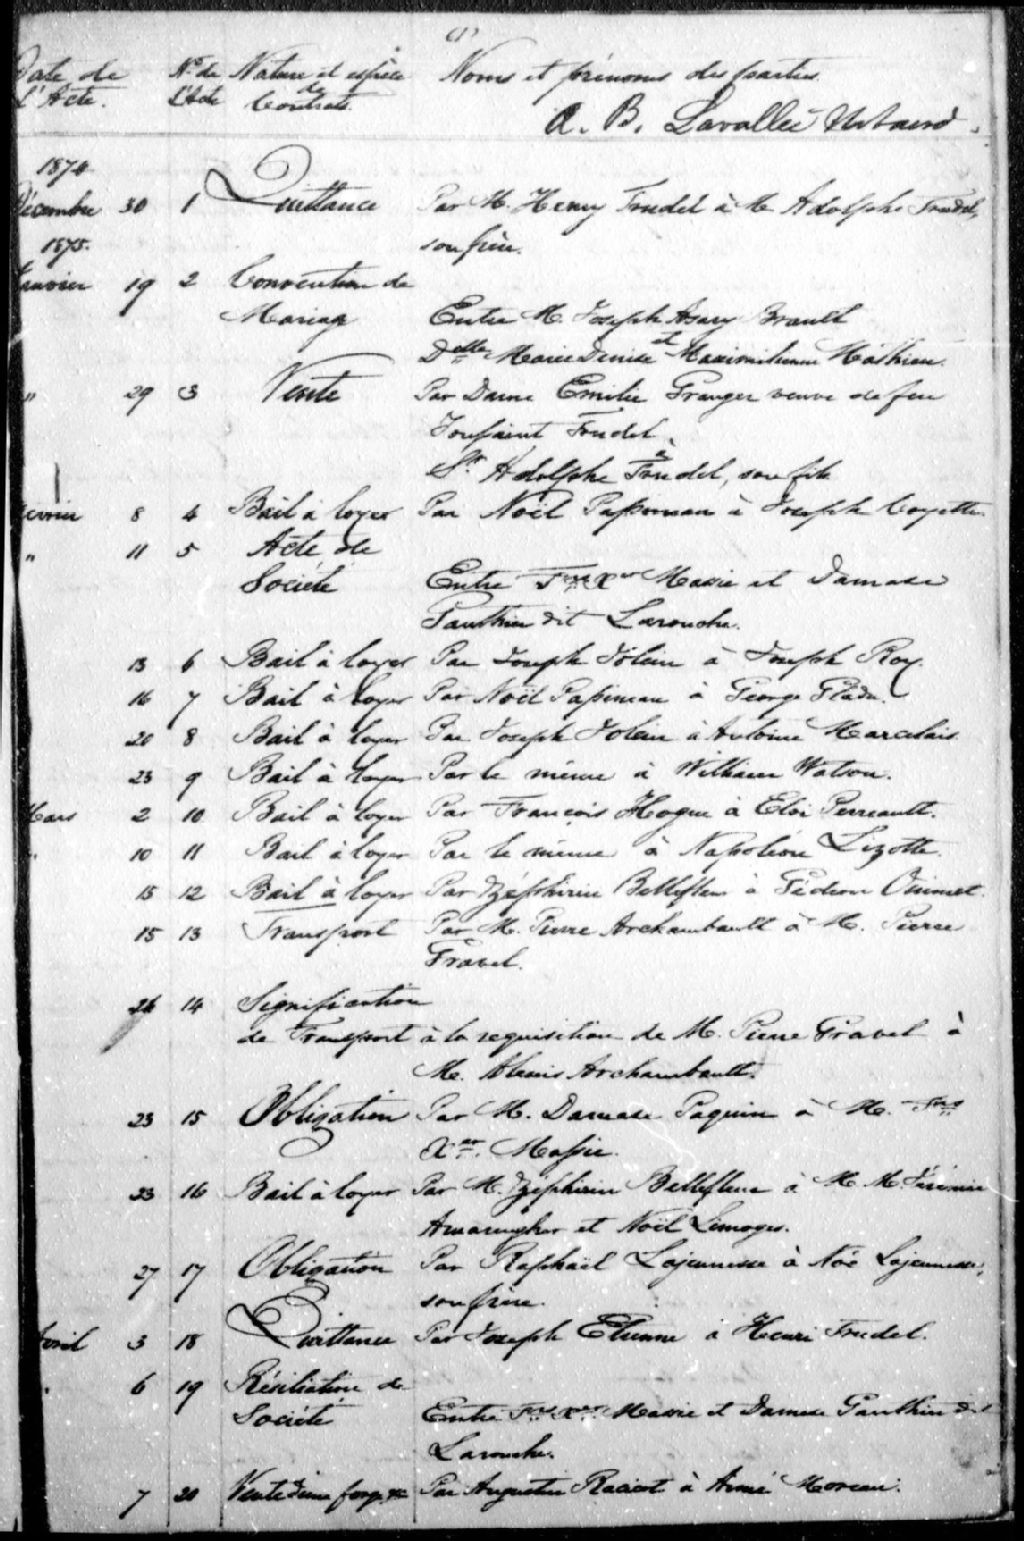 (1)
Date de Nº de Nature et espèce Noms et prénoms des parties
l'Acte. l'Acte de Contrats
A. B. Lavallée Notaire.
1874
Décembre 30 1 Quittance Par M. Henry Trudel à M. Adolphe Trudel,
1875. son frère.
Janvier 19 2 Convention de
Mariage Entre M. Joseph Brault
et
Delle Marie Denise Maximilienne Mathieu.
" 29 3 Vente Par Dame Emilie Granger veuve de feu
Toussaint Trudel,
à
Sr. Adolphe Trudel, son fils
Février 8 4 Bail à loyer Par Noël Papineau à Joseph Goyette
" 11 5 Acte de
Société Entre Frs. Xer Massie et Damase
Gauthier dit Larouche.
13 6 Bail à loyer Par Joseph Jolein à Joseph Roy.
16 7 Bail à loyer Par Noël Papineau à George
20 8 Bail à loyer Par Joseph Jolein à Antoine Marcelais
23 9 Bail à loyer Par le même à William Watson.
Mars 2 10 Bail à loyer Par François Hogue à Eloi Perreault.
" 10 11 Bail à loyer Par le même à Napoléon Lizotte.
15 12 Bail à loyer Par Zéphirin Bellefleur à Gédéon Ouimet.
15 13 Transport Par M. Pierre Archambault à M. Pierre
Gravel.
26 14 Signification
de Transport à la requisition de M. Pierre Gravel à
M. Alexis Archambault.
23 15 Obligation Par M. Damase Paquin à M. Frs
Xer. Massie.
23 16 Bail à loyer Par M. Zéphirin Bellefleur à M. M. Jérémie
et Noël Limoges.
27 17 Obligation Par Raphaël Lajeunesse à Noé Lajeunesse,
son frère.
Avril 3 18 Quittance Par Joseph Etienne à Henri Trudel.
" 6 19 Résiliation de
Société Entre Frs Xer Massie et Damase Gauthier dit
Larouche.
7 20 Vente d'une forge &c Par Augustin Racicot à Aimé Moreau.